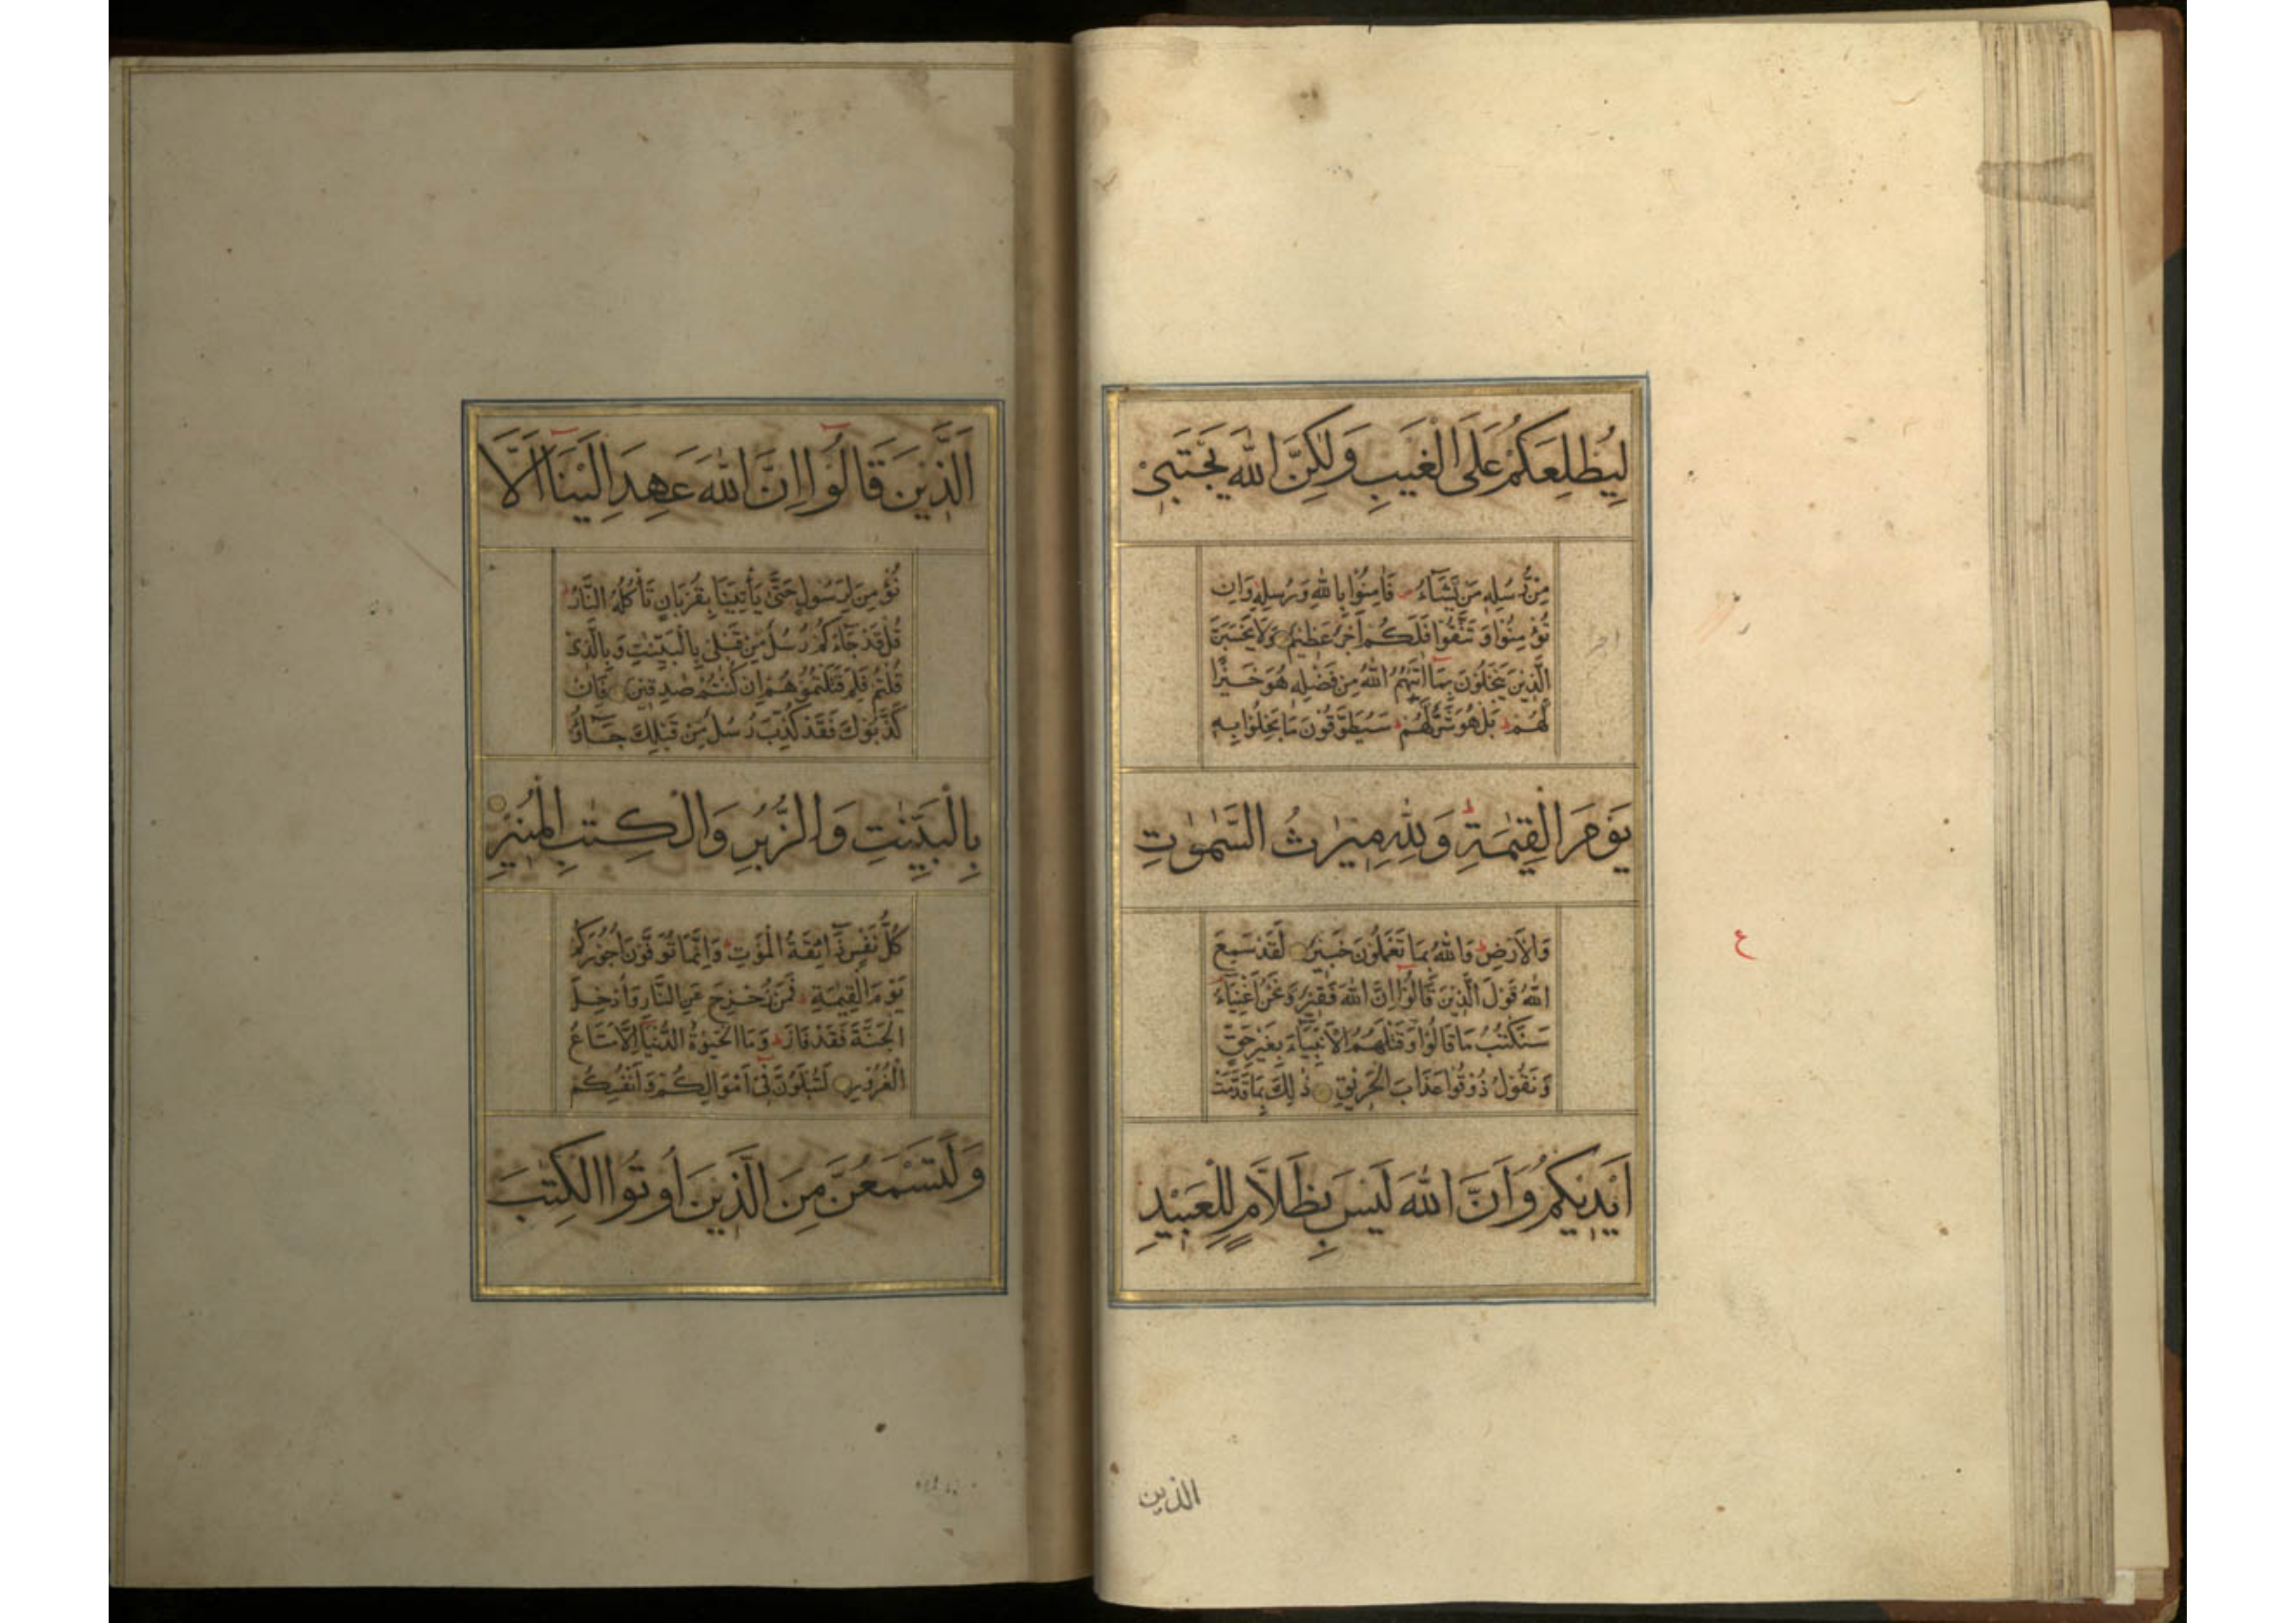 لِيُطْلِعَكُمْ عَلَى الْغَيْبِ وَلٰكِنَّ اللّٰهَ يَجْتَبِيْ
مِنْ رُّسُلِهٖ مَنْ يَّشَآءُ فَاٰمِنُوْا بِاللّٰهِ وَرُسُلِهٖ وَاِنْ
تُؤْمِنُوْا وَتَتَّقُوْا فَلَكُمْ اَجْرٌ عَظِيْمٌ وَلَا يَحْسَبَنَّ
الَّذِيْنَ يَبْخَلُوْنَ بِمَا اٰتٰىهُمُ اللّٰهُ مِنْ فَضْلِهٖ هُوَ خَيْرًا
لَّهُمْ بَلْ هُوَ شَرٌّ لَّهُمْ سَيُطَوَّقُوْنَ مَا بَخِلُوْا بِهٖ
يَوْمَ الْقِيٰمَةِ وَلِلّٰهِ مِيْرٰثُ السَّمٰوٰتِ
وَالْاَرْضِ وَاللّٰهُ بِمَا تَعْمَلُوْنَ خَبِيْرٌ لَقَدْ سَمِعَ
اللّٰهُ قَوْلَ الَّذِيْنَ قَالُوْا اِنَّ اللّٰهَ فَقِيْرٌ وَنَحْنُ اَغْنِيَآءُ
سَنَكْتُبُ مَا قَالُوْا وَقَتْلَهُمُ الْاَنْبِيَآءَ بِغَيْرِ حَقٍّ
وَنَقُوْلُ ذُوْقُوْا عَذَابَ الْحَرِيْقِ ذٰلِكَ بِمَا قَدَّمَتْ
اَيْدِيْكُمْ وَاَنَّ اللّٰهَ لَيْسَ بِظَلَّامٍ لِّلْعَبِيْدِ
ع
الذين
اَلَّذِيْنَ قَالُوْا اِنَّ اللّٰهَ عَهِدَ اِلَيْنَا اَلَّا
نُؤْمِنَ لِرَسُوْلٍ حَتّٰى يَأْتِيَنَا بِقُرْبَانٍ تَأْكُلُهُ النَّارُ
قُلْ قَدْ جَآءَكُمْ رُسُلٌ مِّنْ قَبْلِيْ بِالْبَيِّنٰتِ وَبِالَّذِيْ
قُلْتُمْ فَلِمَ قَتَلْتُمُوْهُمْ اِنْ كُنْتُمْ صٰدِقِيْنَ فَاِنْ
كَذَّبُوْكَ فَقَدْ كُذِّبَ رُسُلٌ مِّنْ قَبْلِكَ جَآؤُ
بِالْبَيِّنٰتِ وَالزُّبُرِ وَالْكِتٰبِ الْمُنِيْرِ
كُلُّ نَفْسٍ ذَآئِقَةُ الْمَوْتِ وَاِنَّمَا تُوَفَّوْنَ اُجُوْرَكُمْ
يَوْمَ الْقِيٰمَةِ فَمَنْ زُحْزِحَ عَنِ النَّارِ وَاُدْخِلَ
الْجَنَّةَ فَقَدْ فَازَ وَمَا الْحَيٰوةُ الدُّنْيَا اِلَّا مَتَاعُ
الْغُرُوْرِ لَتُبْلَوُنَّ فِيْ اَمْوَالِكُمْ وَاَنْفُسِكُمْ
وَلَتَسْمَعُنَّ مِنَ الَّذِيْنَ اُوْتُوا الْكِتٰبَ